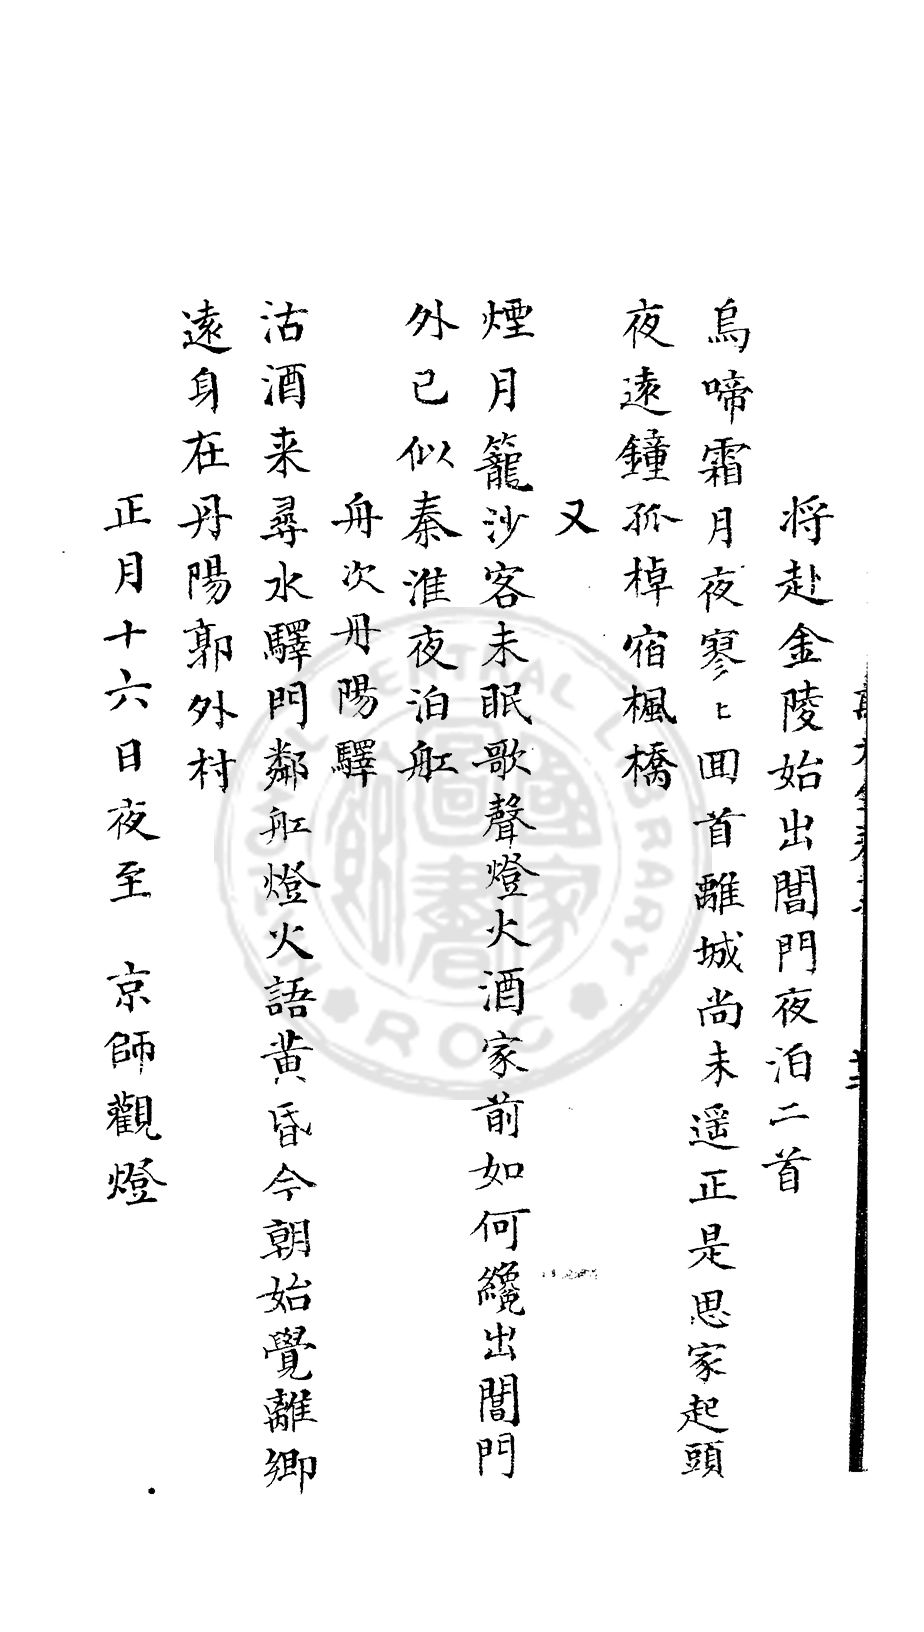 将赴金陵始出閶門夜泊二首
烏啼霜月夜寥〻囬首離城尚未遥正是思家起頭
夜遠鐘孤棹宿楓橋
又
煙月籠沙客未眠歌聲燈火酒家前如何纔出閶門
外已似秦淮夜泊舡
舟次丹陽驛
沽酒来尋水驛門鄰舡燈火語黄昏今朝始覺離鄉
遠身在丹陽郭外村
正月十六日夜至 京師觀燈
CENTRAL LIBRARY
ROC
國家圖書館